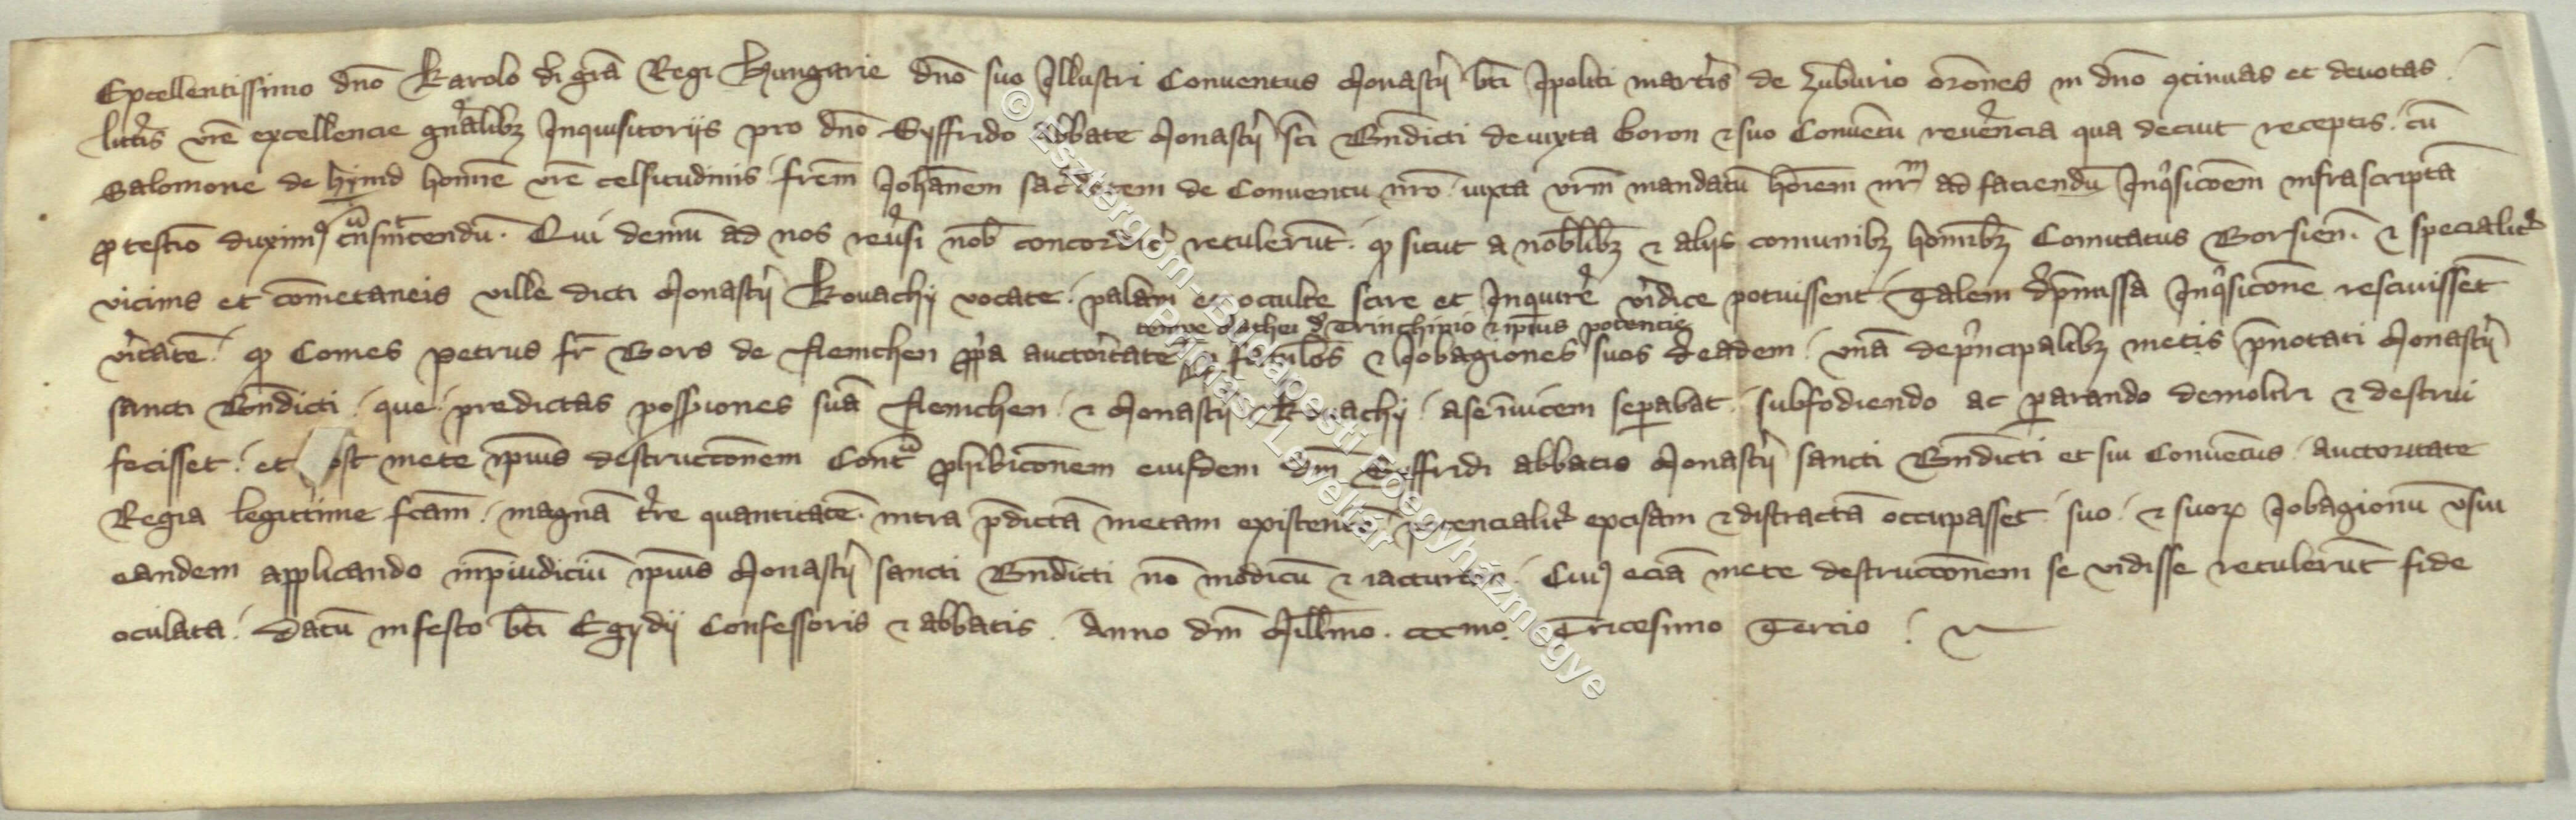 Excellentissimo dno Karolo di gra Regi Hungarie dno suo Illustri Conuentus Monastij bti Ipoliti martiris de Zuburio orones in dno 9tinuas et deuotas.
litteris vre excellencie gnralibz Inquisitorijs pro dno Syffrido Abbate Monastij sci Bndicti de iuxta Goron & suo Conuentu reuerencia qua decuit receptis. cu
Salomone de hymd homine vre celsitudinis frem Johanem sacerdotem de Conuentu nro iuxta vrm mandatu hoiem nrm ad faciendu Inqsicoem infrascripta
p testio duxim9 transmictendu. Qui demu ad nos reuersi nob concorditer retulerut. q sicut a nobilibz & alijs comunibz hominibz Comitatus Borsien. & specialiter
vicinis et cometaneis ville dicti Monastij Kouachy vocate. palam et occulte scire et Inquirere veridice potuissent Talem dpmissa Inqsicone resciuisset
vitate. q Comes Petrus fr Bors de Nemchen ppa auctoritate famulos & Jobagiones suos de eadem. vna de pncipalibz metis pnotati Monastij
tempe Mathei de Trinchinio & ipius potencie
sancti Bndicti. que predictas possiones sua Nemchen. & Monastij Kouachy. a se inuicem separabat. subfodiendo ac parando demoliri & destrui
fecisset. et post mete ipius destruccionem Contra phibicionem eiusdem dni Syffridi abbatis Monastij sancti Bndicti et sui Conuentus auctoritate
Regia legittime fcam. magna tre quantitate. intra pdicta metam existentem potencialiter excisam & distracta occupasset. suo. & suorum Jobagionu vsui
eandem applicando in piudiciu ipius Monastij sancti Bndicti no modicu & iacturam. Cui9 ecia mete destruccionem se vidisse retulerut fide
oculata. Datu in festo bti Egydij Confessoris & abbatis. Anno dni Millmo. cccmo. Tricesimo Tercio.
© Esztergom-Budapesti Főegyházmegye
Prímási Levéltár